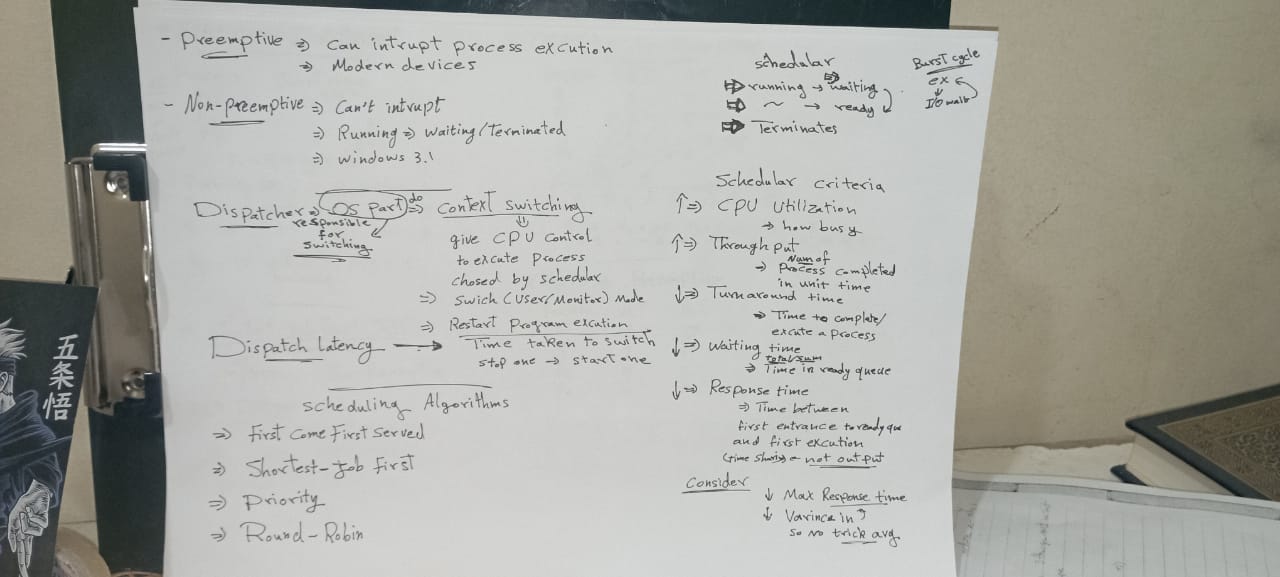 - Preemptive ⇒ Can intrupt process excution
⇒ Modern devices
- Non-preemptive ⇒ Can't intrupt
⇒ Running ⇒ waiting/Terminated
⇒ windows 3.1
Dispatcher ⇒ OS part do ⇒ Context switching
responsible
for
switching
give CPU control
to excute process
chosed by schedular
⇒ Swich (User/Monitor) Mode
⇒ Restart Program excution
Dispatch Latency → Time taken to switch
stop one → start one
Scheduling Algorithms
⇒ First Come First Served
⇒ Shortest-Job First
⇒ Priority
⇒ Round-Robin
schedular
⇒ running → waiting
⇒ ~ → ready
⇒ Terminates
Burst cycle
ex
↓
I/O wait
Schedular Criteria
↑⇒ CPU Utilization
→ how busy
↑⇒ Through put
Num of
→ Process completed
in unit time
↓⇒ Turnaround time
→ Time to complete/
excute a process
↓⇒ waiting time
total sum
⇒ Time in ready queue
↓⇒ Response time
⇒ Time between
first entrance to ready que
and first excution
not output
Consider
↓ Max Response time
↓ Varince in
so no trick avg
五条悟